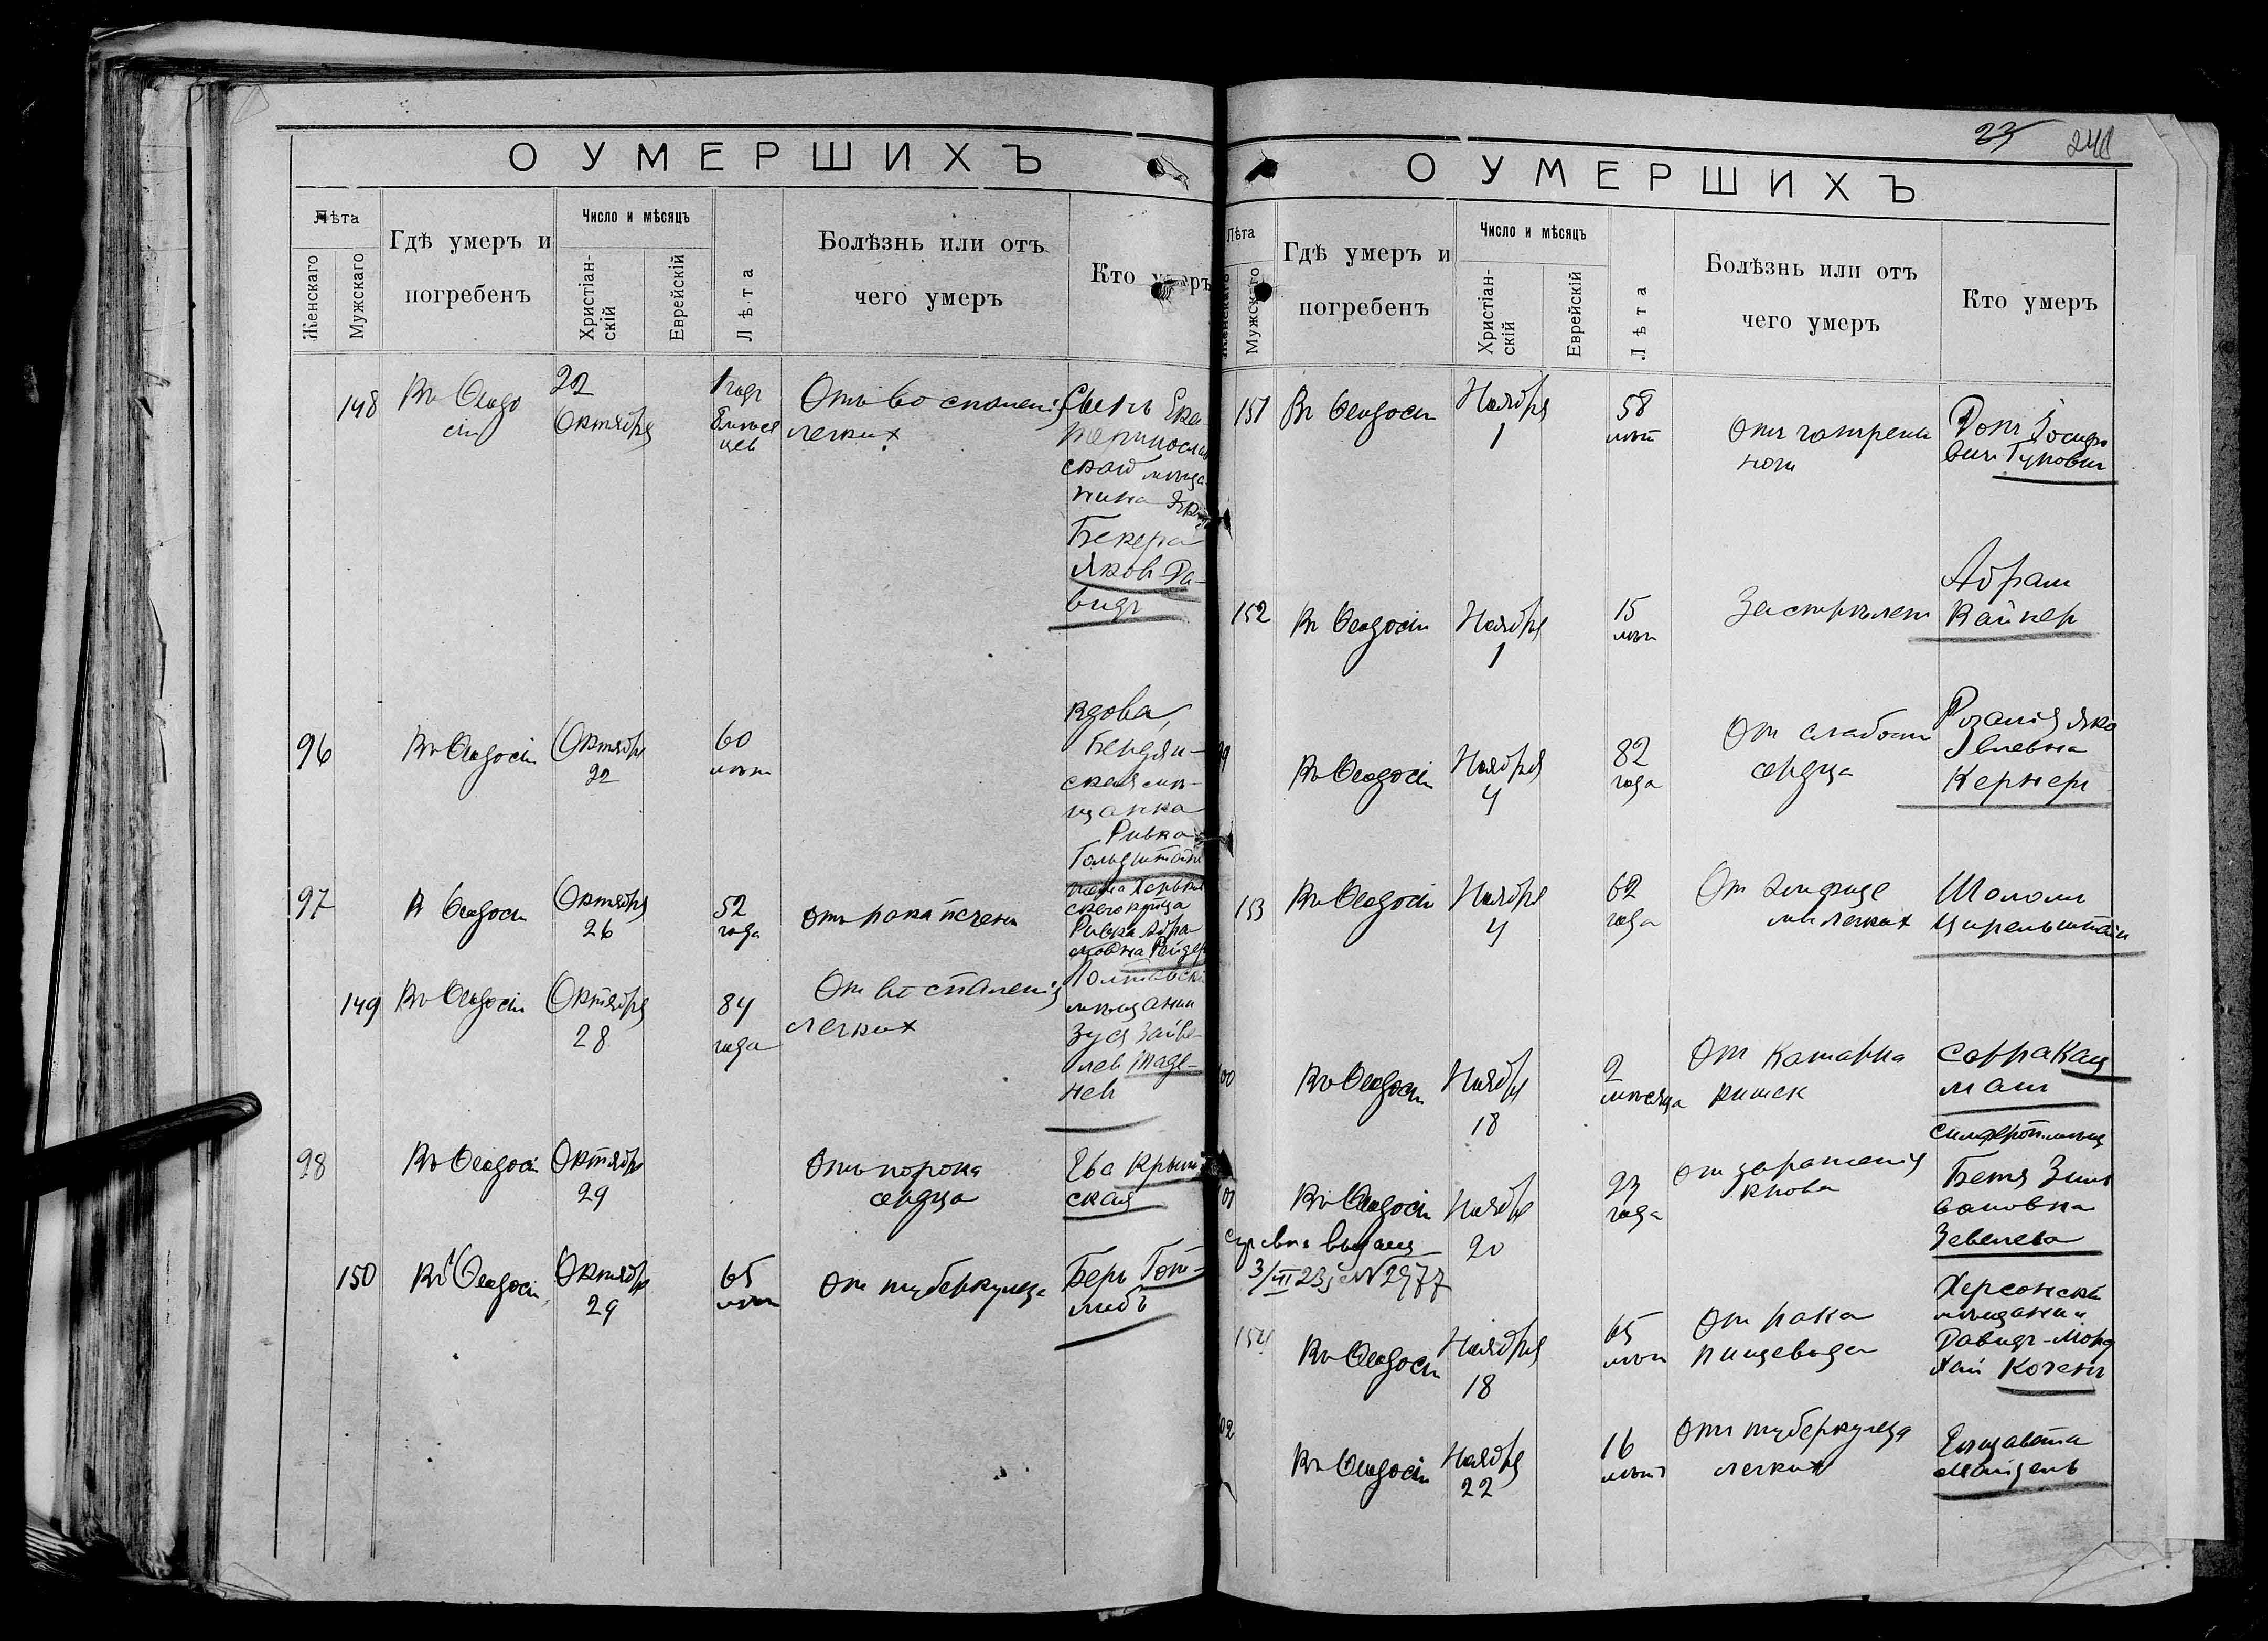 О УМЕРШИХЪ
Лѣта
Женскаго
Мужскаго
Гдѣ умеръ и
погребенъ
Число и мѣсяцъ
Христіан-
скій
Еврейскій
Лѣта
Болѣзнь или отъ
чего умеръ
Кто умеръ
148
Въ Ѳеодо
сіи
22
Октября
1 годъ
8 мѣся
цевъ
Отъ воспаленія
легкихъ
Сынъ Ека
теринослав
ской мѣща
нина
Бекера
Яковъ-Да-
видъ
96
Въ Ѳеодосіи
Октября
22
60
лѣтъ
Вдова,
Бердян-
ская мѣ-
щанка
Ривка
Гольдштейн
97
В Ѳеодосіи
Октября
26
52
года
Отъ рака печени
жена Харьков
скаго купца
Ривка Абра
мовна Рейдер
149
Въ Ѳеодосіи
Октября
28
84
года
От воспаленія
легких
Полтавскій
мѣщанин
Зуся Зайве
лев Таде-
нев
98
Въ Ѳеодосіи
Октября
29
Отъ порока
сердца
Ева Крым
ская
150
Въ Ѳеодосіи
Октября
29
65
лѣтъ
От туберкулеза
Беръ Гот-
либъ
23
248
О УМЕРШИХЪ
Лѣта
Женскаго
Мужскаго
Гдѣ умеръ и
погребенъ
Число и мѣсяцъ
Христіан-
скій
Еврейскій
Лѣта
Болѣзнь или отъ
чего умеръ
Кто умеръ
151
Въ Ѳеодосіи
Ноября
1
58
лѣтъ
Отъ гангрены
ноги
Іосифо
вич Гукович
152
Въ Ѳеодосіи
Ноября
1
15
лѣтъ
Застрѣлен
Абрам
Вайнер
99
Въ Ѳеодосіи
Ноября
4
82
года
От слабости
сердца
Розалія Яко
влевна
Кернеръ
153
Въ Ѳеодосіи
Ноября
4
62
года
От эмфизе
мы легких
Шолом
Цирельштейн
100
Въ Ѳеодосіи
Ноября
18
2
мѣсяца
От катарра
кишек
Сарра Кац
ман
симферопол. мѣщ
101
Въ Ѳеодосіи
Ноября
20
23
года
От зараженія
крови
Бетя
Зевелева
Справка выдана
3/III 23 г. № 2977
154
Въ Ѳеодосіи
Ноября
18
65
лѣтъ
От рака
пищевода
Херсонскій
мѣщанин
Давидъ-Морд
хай Когенъ
102
Въ Ѳеодосіи
Ноября
22
16
лѣтъ
Отъ туберкулеза
легких
Елизавета